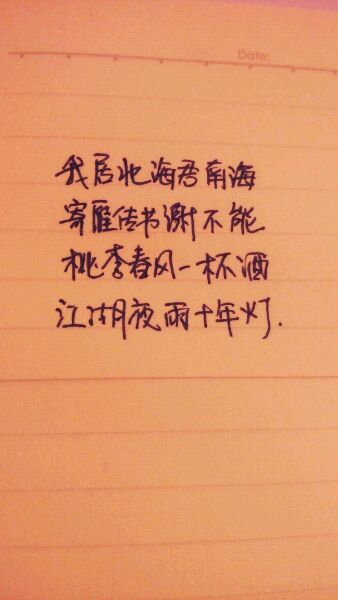 Date:
我居北海君南海
寄雁传书谢不能
桃李春风一杯酒
江湖夜雨十年灯.